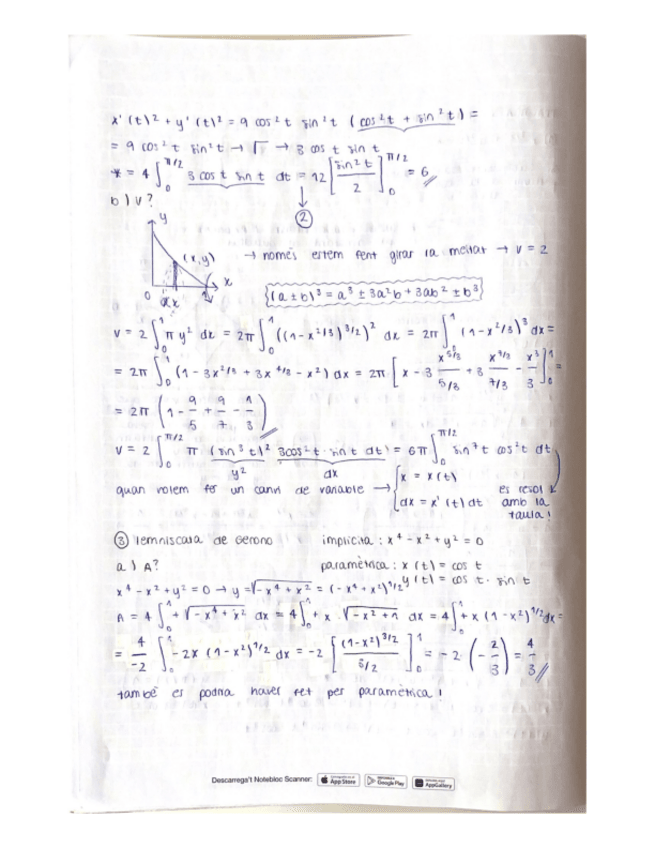 x'(t)² + y'(t)² = 9 cos²t sin²t (cos²t + sin²t) =
= 9 cos²t sin²t → √ → 3 cos t sin t
* = 4 ∫₀^(π/2) 3 cos t sin t dt = 12 [sin²t / 2]₀^(π/2) = 6
②
b) V?
y
(x,y)
x
0
dx
1
→ només estem fent girar la meitat → V = 2
(a ± b)³ = a³ ± 3a²b + 3ab² ± b³
V = 2 ∫₀¹ π y² dx = 2π ∫₀¹ ((1 - x^(2/3))^(3/2))² dx = 2π ∫₀¹ (1 - x^(2/3))³ dx =
= 2π ∫₀¹ (1 - 3x^(2/3) + 3x^(4/3) - x²) dx = 2π [x - 3 x^(5/3)/(5/3) + 3 x^(7/3)/(7/3) - x³/3]₀¹ =
= 2π (1 - 9/5 + 9/7 - 1/3)
V = 2 ∫₀^(π/2) π (sin³t)² 3cos²t · sin t dt = 6π ∫₀^(π/2) sin⁷t cos²t dt
y² dx
quan volem fer un canvi de variable → { x = x(t)
dx = x'(t) dt
es resol
amb la
taula!
③ lemniscata de Gerono implícita: x⁴ - x² + y² = 0
a) A? paramètrica: x(t) = cos t
y(t) = cos t · sin t
x⁴ - x² + y² = 0 → y = √(-x⁴ + x²) = (-x⁴ + x²)^(1/2)
A = 4 ∫₀¹ +√(-x⁴ + x²) dx = 4 ∫₀¹ + x · √(-x² + 1) dx = 4 ∫₀¹ + x (1 - x²)^(1/2) dx =
= 4/-2 ∫₀¹ -2x (1 - x²)^(1/2) dx = -2 [(1 - x²)^(3/2) / 3/2]₀¹ = -2 · (-2/3) = 4/3
també es podria haver fet per paramètrica!
Descarrega't Notebloc Scanner:
App Store
Google Play
AppGallery